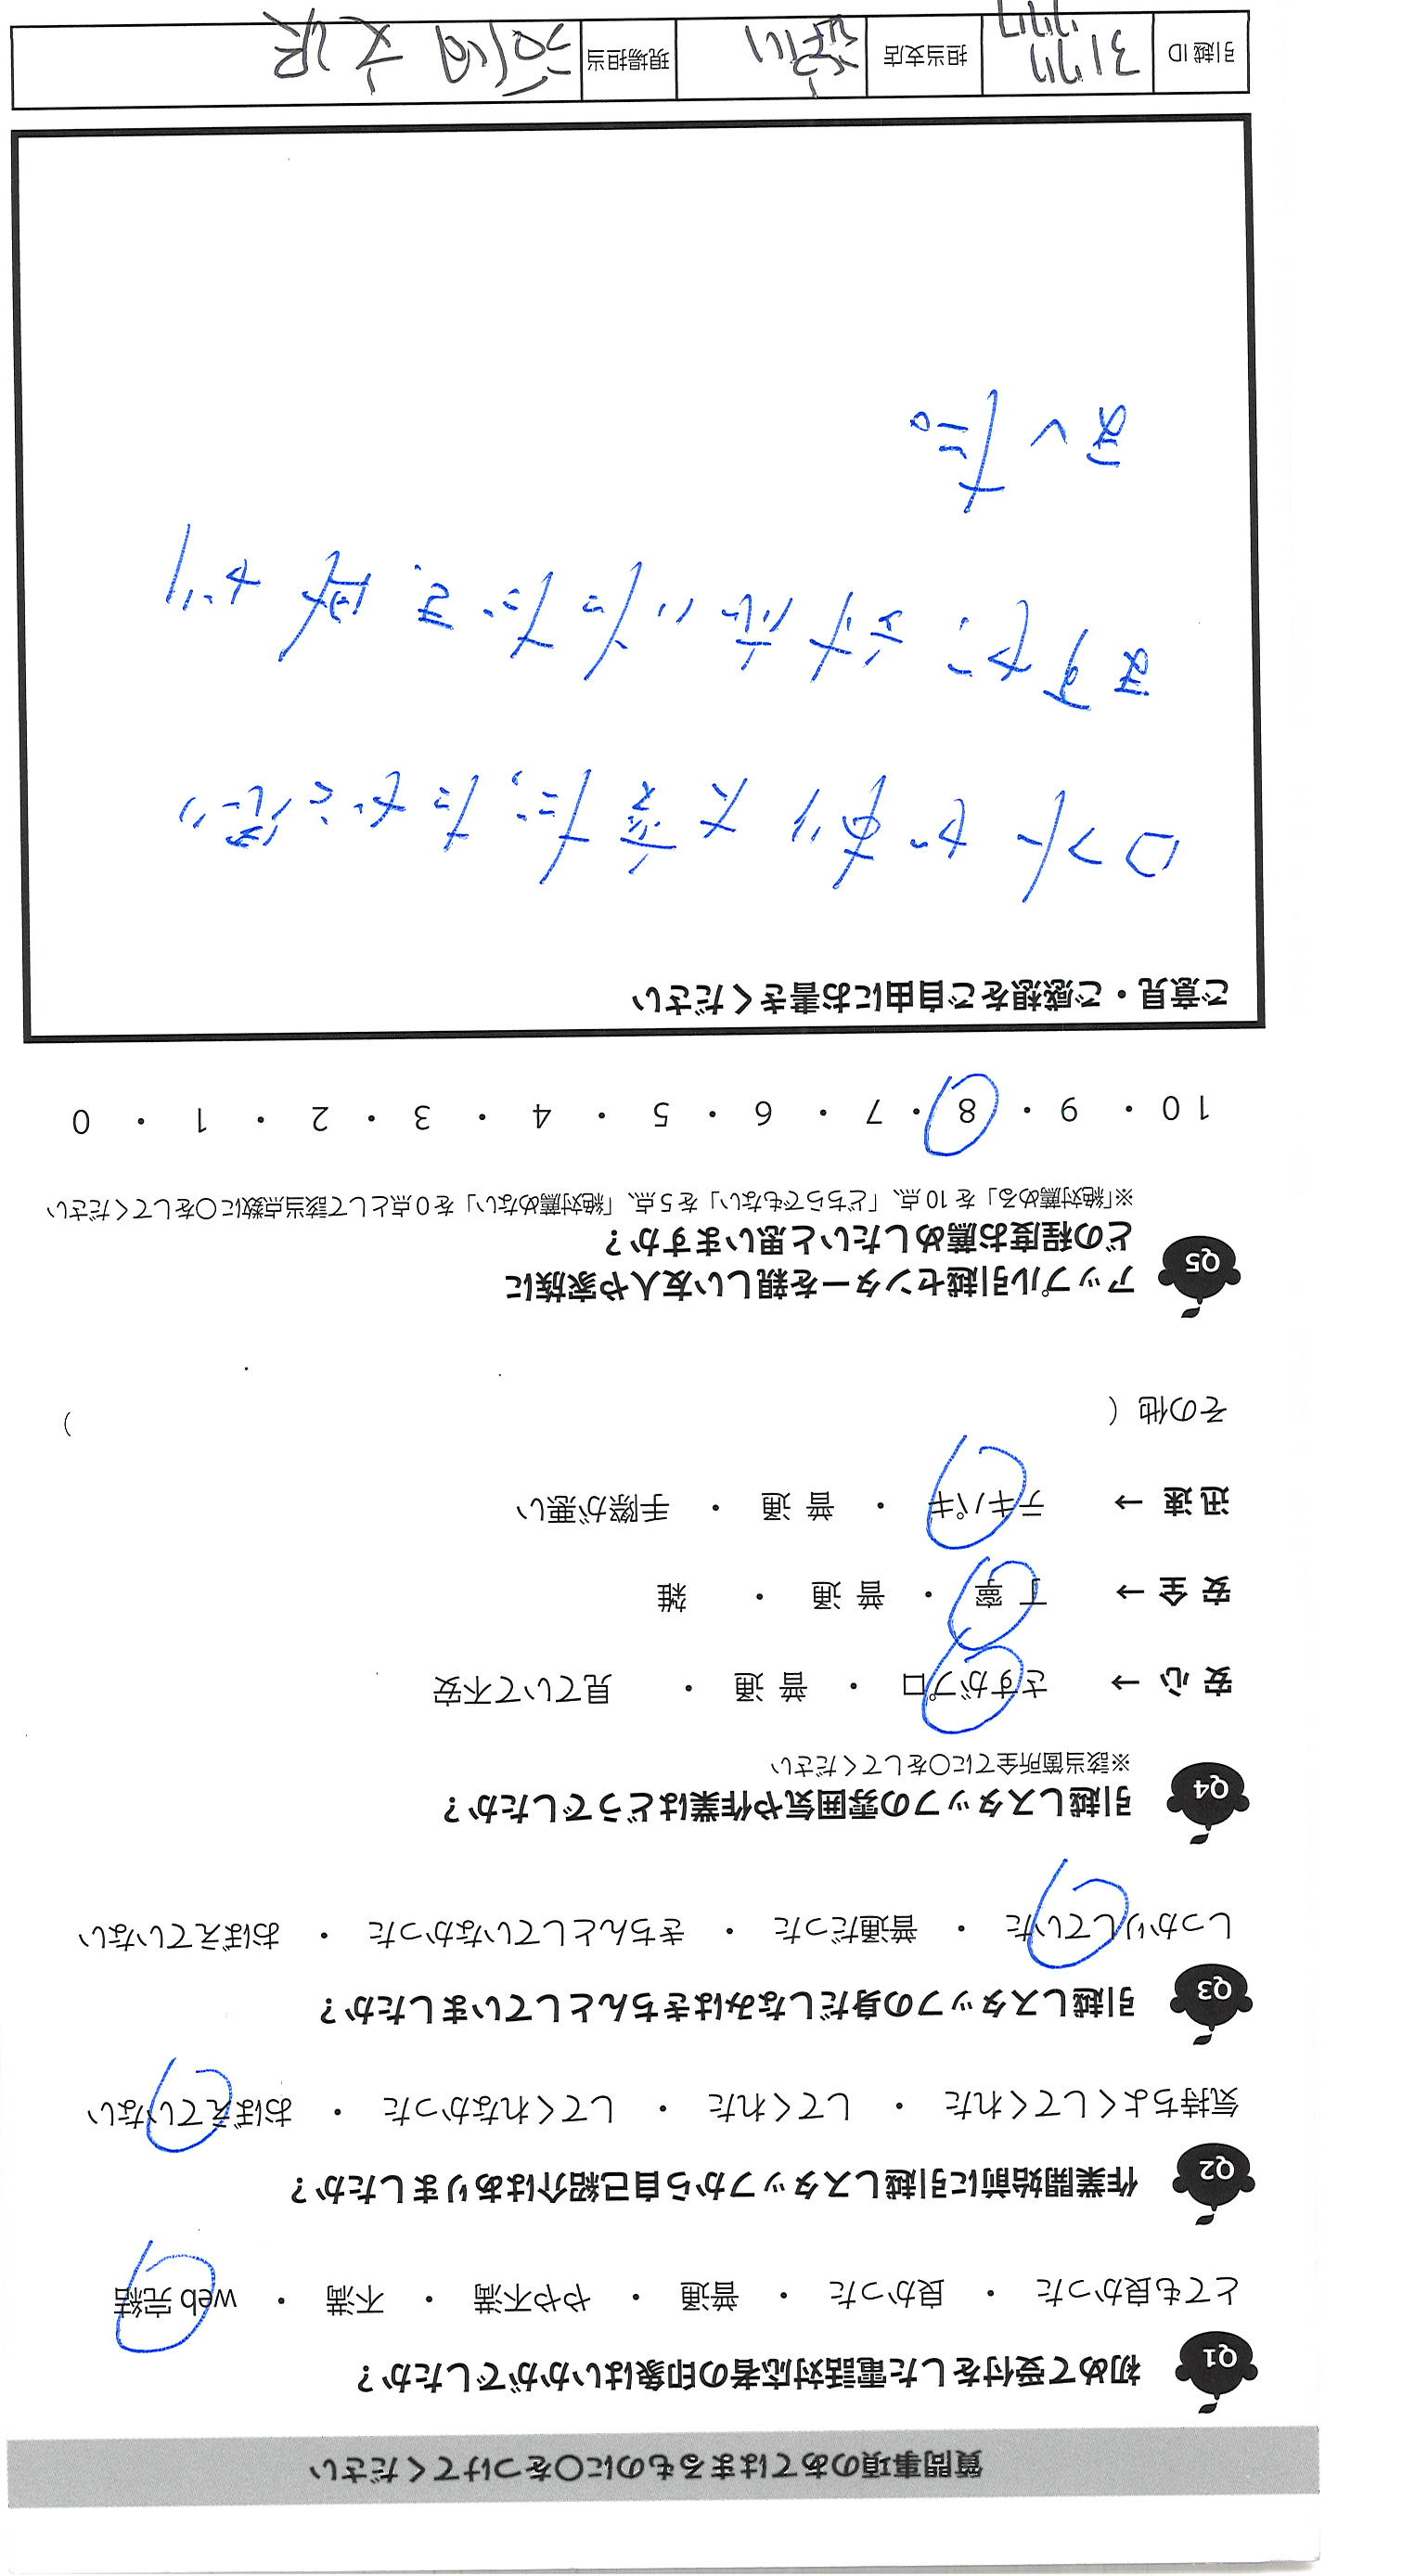 質問事項のあてはまるものに〇をつけてください
Q1 初めて受付をした電話対応者の印象はいかがでしたか？
とても良かった ・ 良かった ・ 普通 ・ やや不満 ・ 不満 ・ web 完結
Q2 作業開始前に引越しスタッフから自己紹介はありましたか？
気持ちよくしてくれた ・ してくれた ・ してくれなかった ・ おぼえていない
Q3 引越しスタッフの身だしなみはきちんとしていましたか？
しっかりしていた ・ 普通だった ・ きちんとしていなかった ・ おぼえていない
Q4 引越しスタッフの雰囲気や作業はどうでしたか？
※該当箇所全てに〇をしてください
安 心 → さすがプロ ・ 普 通 ・ 見ていて不安
安 全 → 丁 寧 ・ 普 通 ・ 雑
迅 速 → テキパキ ・ 普 通 ・ 手際が悪い
その他（ ）
Q5 アップル引越センターを親しい友人や家族に
どの程度お薦めしたいと思いますか？
※「絶対薦める」を 10 点、「どちらでもない」を 5 点、「絶対薦めない」を 0 点として該当点数に〇をしてください
10 ・ 9 ・ 8 ・ 7 ・ 6 ・ 5 ・ 4 ・ 3 ・ 2 ・ 1 ・ 0
ご意見・ご感想をご自由にお書きください
引越 ID 担当支店 現場担当